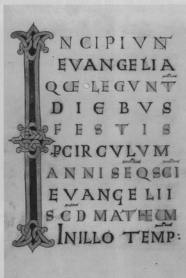 INCIPIUNT
EVANGELIA
QUE LEGUNT
DIEBUS
FESTIS
P CIRCULUM
ANNI SEQ SCI
EVANGELII
SCD MATHEUM
IN ILLO TEMP: